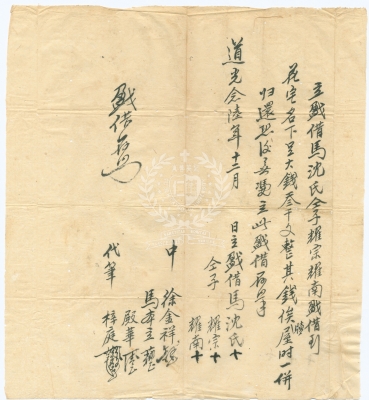 立戤借馬沈氏仝子耀宗耀南戤借到
宅名下足大錢叁千文整其錢俟屋時一併
歸還恐後無憑立此戤借為
道光念陸年十二月 日立戤借馬沈氏十
仝子 耀宗十
耀南十
中 徐金祥
馬本立
殿華
代筆 梓庭
戤借為